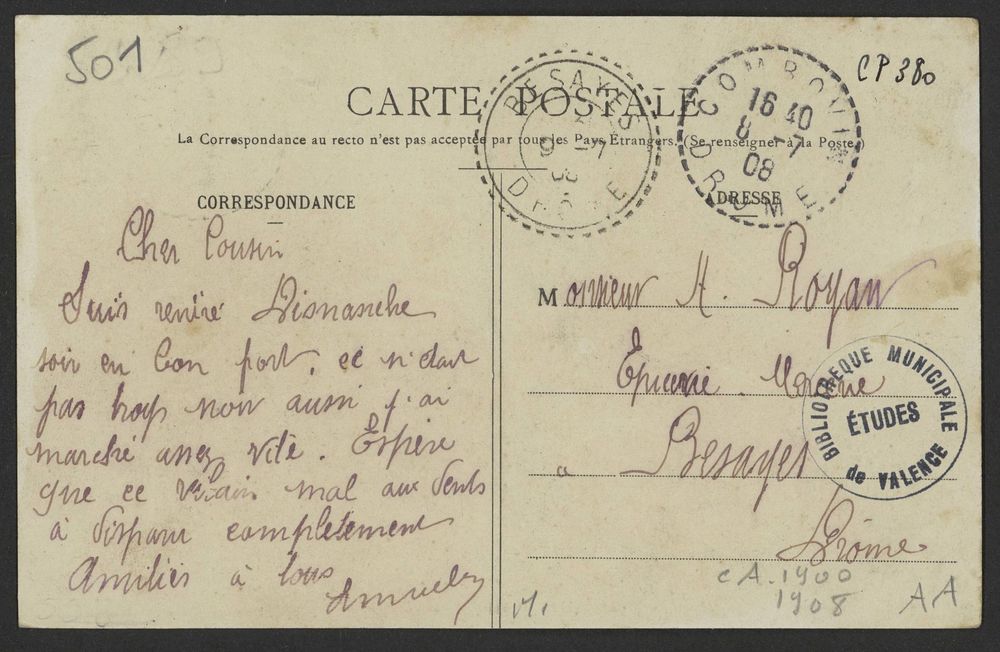 501
CP 380
CARTE POSTALE
La Correspondance au recto n'est pas acceptée par tous les Pays Étrangers. (Se renseigner à la Poste.)
BESAYES
9 -7
08
DRÔME
COMBOVIN
16 40
8 -7
08
DROME
CORRESPONDANCE
ADRESSE
Cher Cousin
Suis rentré Dismanche
soir en bon port, ce n'était
pas trop noir aussi j'ai
marché assez vite. Espère
que ce vilain mal aux dents
à disparu complètement
Amitiés à tous
Monsieur A. Royan
Epicerie
a Besayes
Drôme
BIBLIOTHEQUE MUNICIPALE
ÉTUDES
de VALENCE
CA. 1900
1908
AA